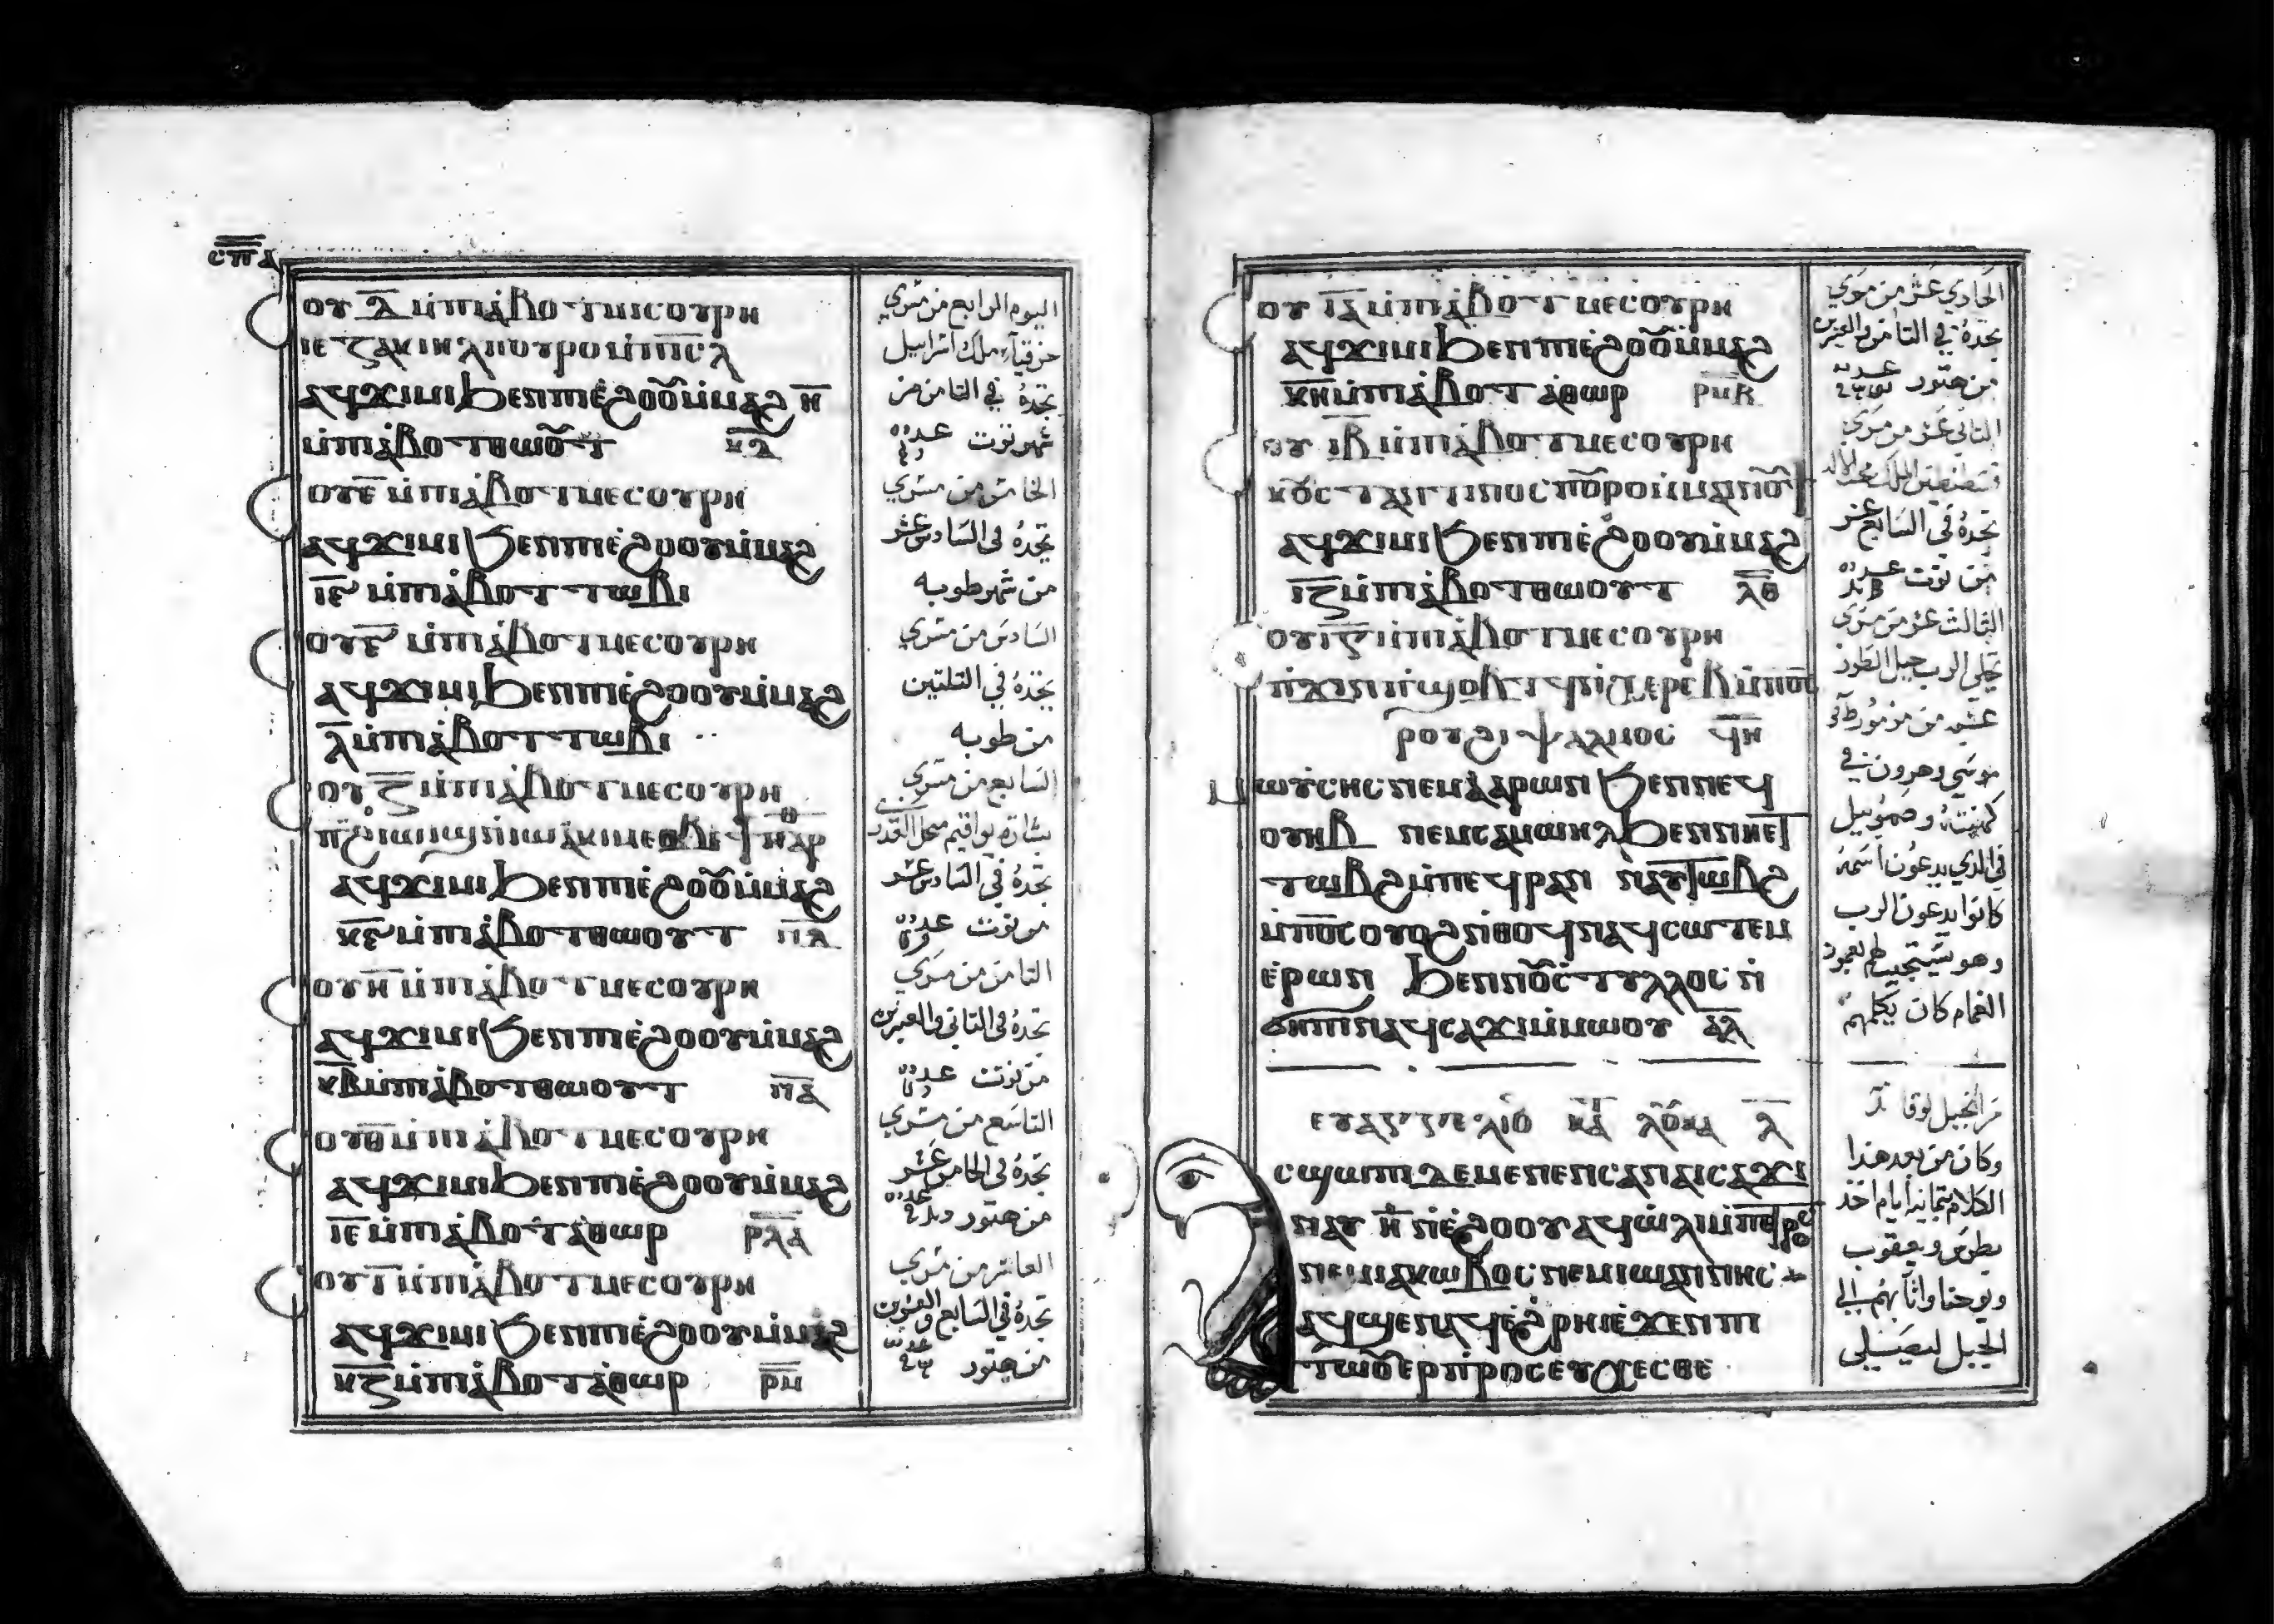 ⲥⲡⲇ
ⲥⲟⲩ ⲇ̅ ⲙ̀ⲡⲓⲁ̀ⲃⲟⲧ ⲙⲉⲥⲟⲩⲣⲏ
ⲓⲉⲍⲉⲕⲓⲏⲗ ⲡⲟⲩⲣⲟ ⲙ̀ⲡⲓⲥ̅ⲗ̅
ⲁϥϫⲓⲙⲓ ϧⲉⲛ ⲡⲓⲉ̀ϩⲟⲟⲩ ⲙ̀ⲙⲁϩ ⲏ̅
ⲙ̀ⲡⲓⲁ̀ⲃⲟⲧ ⲑⲱⲟⲩⲧ ⲕⲇ̅
ⲥⲟⲩ ⲉ̅ ⲙ̀ⲡⲓⲁ̀ⲃⲟⲧ ⲙⲉⲥⲟⲩⲣⲏ
ⲁϥϫⲓⲙⲓ ϧⲉⲛ ⲡⲓⲉ̀ϩⲟⲟⲩ ⲙ̀ⲙⲁϩ
ⲓ̅ⲋ̅ ⲙ̀ⲡⲓⲁ̀ⲃⲟⲧ ⲧⲱⲃⲓ
ⲥⲟⲩ ⲋ̅ ⲙ̀ⲡⲓⲁ̀ⲃⲟⲧ ⲙⲉⲥⲟⲩⲣⲏ
ⲁϥϫⲓⲙⲓ ϧⲉⲛ ⲡⲓⲉ̀ϩⲟⲟⲩ ⲙ̀ⲙⲁϩ
ⲗ̅ ⲙ̀ⲡⲓⲁ̀ⲃⲟⲧ ⲧⲱⲃⲓ
ⲥⲟⲩ ⲍ̅ ⲙ̀ⲡⲓⲁ̀ⲃⲟⲧ ⲙⲉⲥⲟⲩⲣⲏ
ⲁϥϫⲓⲙⲓ ϧⲉⲛ ⲡⲓⲉ̀ϩⲟⲟⲩ ⲙ̀ⲙⲁϩ
ⲕ̅ⲋ̅ ⲙ̀ⲡⲓⲁ̀ⲃⲟⲧ ⲑⲱⲟⲩⲧ ⲡⲇ̅
ⲥⲟⲩ ⲏ̅ ⲙ̀ⲡⲓⲁ̀ⲃⲟⲧ ⲙⲉⲥⲟⲩⲣⲏ
ⲁϥϫⲓⲙⲓ ϧⲉⲛ ⲡⲓⲉ̀ϩⲟⲟⲩ ⲙ̀ⲙⲁϩ
ⲕ̅ⲃ̅ ⲙ̀ⲡⲓⲁ̀ⲃⲟⲧ ⲑⲱⲟⲩⲧ ⲡⲁ̅
ⲥⲟⲩ ⲑ̅ ⲙ̀ⲡⲓⲁ̀ⲃⲟⲧ ⲙⲉⲥⲟⲩⲣⲏ
ⲁϥϫⲓⲙⲓ ϧⲉⲛ ⲡⲓⲉ̀ϩⲟⲟⲩ ⲙ̀ⲙⲁϩ
ⲓ̅ⲉ̅ ⲙ̀ⲡⲓⲁ̀ⲃⲟⲧ ⲁ̀ⲑⲱⲣ ⲣⲗⲇ̅
ⲥⲟⲩ ⲓ̅ ⲙ̀ⲡⲓⲁ̀ⲃⲟⲧ ⲙⲉⲥⲟⲩⲣⲏ
ⲁϥϫⲓⲙⲓ ϧⲉⲛ ⲡⲓⲉ̀ϩⲟⲟⲩ ⲙ̀ⲙⲁϩ
ⲕ̅ⲍ̅ ⲙ̀ⲡⲓⲁ̀ⲃⲟⲧ ⲁ̀ⲑⲱⲣ ⲣⲙ̅
اليوم الرابع من مسري
حزقيا ملك اسراييل
تجده في الثامن من
شهر توت
الخامس من مسري
تجده في السادس عشر
من شهر طوبه
السادس من مسري
تجده في الثلثين
من طوبه
السابع من مسري
بشارة يواقيم
تجده في السادس عشر
من توت
الثامن من مسري
تجده في الثاني والعشرين
من توت
التاسع من مسري
تجده في الخامس عشر
من هتور
العاشر من مسري
تجده في السابع والعشرين
من هتور
ⲥⲟⲩ ⲓ̅ⲁ̅ ⲙ̀ⲡⲓⲁ̀ⲃⲟⲧ ⲙⲉⲥⲟⲩⲣⲏ
ⲁϥϫⲓⲙⲓ ϧⲉⲛ ⲡⲓⲉ̀ϩⲟⲟⲩ ⲙ̀ⲙⲁϩ
ⲕ̅ⲏ̅ ⲙ̀ⲡⲓⲁ̀ⲃⲟⲧ ⲁ̀ⲑⲱⲣ ⲣⲙⲃ̅
ⲥⲟⲩ ⲓ̅ⲃ̅ ⲙ̀ⲡⲓⲁ̀ⲃⲟⲧ ⲙⲉⲥⲟⲩⲣⲏ
ⲕⲟⲥⲧⲁⲛⲧⲓⲛⲟⲥ ⲡⲟⲩⲣⲟ
ⲁϥϫⲓⲙⲓ ϧⲉⲛ ⲡⲓⲉ̀ϩⲟⲟⲩ ⲙ̀ⲙⲁϩ
ⲓ̅ⲍ̅ ⲙ̀ⲡⲓⲁ̀ⲃⲟⲧ ⲑⲱⲟⲩⲧ ⲗⲑ̅
ⲥⲟⲩ ⲓ̅ⲅ̅ ⲙ̀ⲡⲓⲁ̀ⲃⲟⲧ ⲙⲉⲥⲟⲩⲣⲏ
ⲣⲟⲩϩⲓ ⲯⲁⲗⲙⲟⲥ ϥⲏ̅
ⲙⲱⲩⲥⲏⲥ ⲛⲉⲙ ⲁ̀ⲁⲣⲱⲛ ϧⲉⲛ ⲛⲉϥ
ⲟⲩⲏⲃ ⲛⲉⲙ ⲥⲁⲙⲟⲩⲏⲗ ϧⲉⲛ ⲛⲏⲉⲧ
ⲧⲱⲃϩ ⲙ̀ⲡⲉϥⲣⲁⲛ ⲛⲁⲩⲧⲱⲃϩ
ⲙ̀ⲡⲟ̅ⲥ̅ ⲟⲩⲟϩ ⲛ̀ⲑⲟϥ ⲛⲁϥⲥⲱⲧⲉⲙ
ⲉ̀ⲣⲱⲟⲩ ϧⲉⲛ ⲡⲓⲥⲧⲩⲗⲗⲟⲥ ⲛ̀
ϭⲏⲡⲓ ⲛⲁϥⲥⲁϫⲓ ⲛⲉⲙⲱⲟⲩ ⲁ̅ⲗ̅
ⲉⲩⲁⲅⲅⲉⲗⲓⲟ ⲕⲁ̅ ⲗⲟⲩⲕⲁ ⲇ̅
ⲥϣⲱⲡⲓ ⲇⲉ ⲙⲉⲛⲉⲛⲥⲁ ⲛⲁⲓⲥⲁϫⲓ
ⲛⲁⲩ ⲏ̅ ⲛ̀ⲉ̀ϩⲟⲟⲩ ⲁϥⲱ̀ⲗⲓ ⲙ̀ⲡⲉⲧⲣⲟⲥ
ⲛⲉⲙ ⲓⲁⲕⲱⲃⲟⲥ ⲛⲉⲙ ⲓⲱⲁⲛⲛⲏⲥ
ⲁϥϣⲉⲛⲁϥ ⲉ̀ϩⲣⲏⲓ ⲉ̀ϫⲉⲛ ⲡⲓ
ⲧⲱⲟⲩ ⲉⲣⲡⲣⲟⲥⲉⲩⲭⲉⲥⲑⲉ
الحادي عشر من مسري
تجده في الثامن والعشرين
من هتور
الثاني عشر من مسري
قسطنطين الملك
تجده في السابع عشر
من توت
الثالث عشر من مسري
تجلي الرب جبل الطور
عشيه من مزمور
موسي وهرون في
كهنته وصموييل
في الذي يدعون اسمه
كانوا يدعون الرب
وهو يستجيب لهم بعمود
الغمام كان يكلمهم
من انجيل لوقا
وكان من بعد هذا
الكلام بثمانيه ايام اخذ
بطرس ويعقوب
ويوحنا واتا بهم الي
الجبل ليصلي